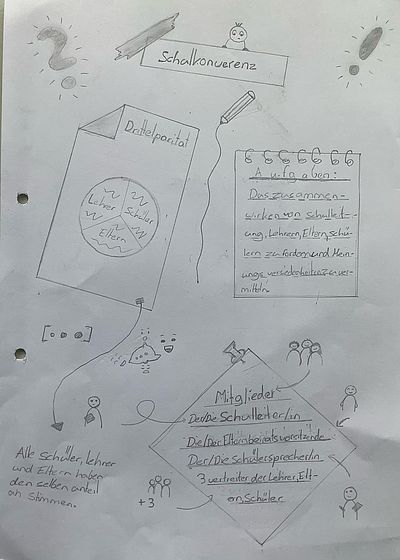 Schulkonverenz
Drittelparität
Lehrer
Schüler
Eltern
Aufgaben:
Das zusammen-
wirken von Schulleit-
ung, Lehrern, Eltern, Schü-
lern zu fördern und Mein-
ungs versiedenheiten zu ver-
mitteln.
[...]
Mitglieder
Der/Die Schulleiter/in
Die/Der Elternbeiratsvorsitzende
Der/Die Schülersprecher/in
3 vertreter der Lehrer, Elt-
ern, Schüler
Alle Schüler, Lehrer
und Eltern haben
den selben anteil
an Stimmen.
+3